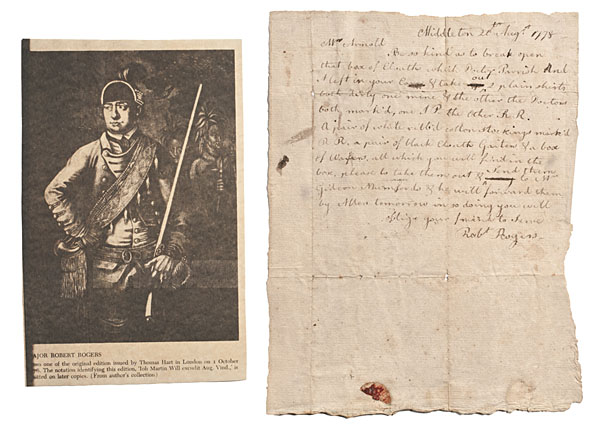 AJOR ROBERT ROGERS
one of the original edition issued by Thomas Hart in London on 1 October
The notation identifying this edition, "Joh Martin Will excudit Aug. Vind., is
on later copies. (From author's collection)
Middleton 20th Augt. 1778
Mrs Arnold
Be so kind as to break open
that box of Cloaths which Doctor Parrish And
I left in your & take out 2 plain shirts
both dirty one mine & the other the Doctors
both mark'd, one P. the other R. R.
A pair of white ribb'd cotton Stockings mark'd
R. R. a pair of black Cloath Gaiters & a box
of Wafers, all which you will find in the
box, please to take them out & send them to Mr
Gideon Mumfords & he will forward them
by Allen tomorrow in so doing you will
oblige your friend to serve
Robt. Rogers